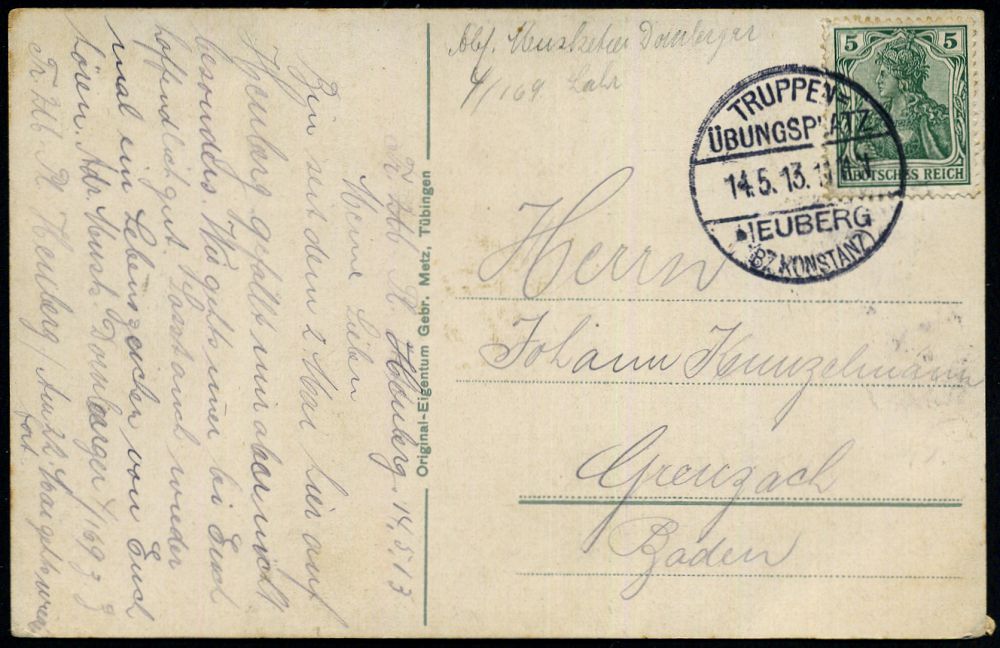 Abs. Musketier Dornberger
4/169 Lahr
5 5
DEUTSCHES REICH
TRUPPEN=
ÜBUNGSPLATZ
14.5.13.
HEUBERG
(BZ. KONSTANZ)
Herrn
Johann Kunzelmann
Grenzach
Baden
Original-Eigentum Gebr. Metz, Tübingen
Heuberg. 14.5.13
Meine Lieben
Bin seit dem 2 Mai hier auf
Heuberg gefällt mir aber nicht
besonders. Wie gehts immer bei Euch
hoffendlich gut. Lasst auch wieder
mal ein Lebenszeichen von Euch
hören. Adr. Musk. Dornberger 4/169 z Z
Tr. Üb. Pl. Heuberg